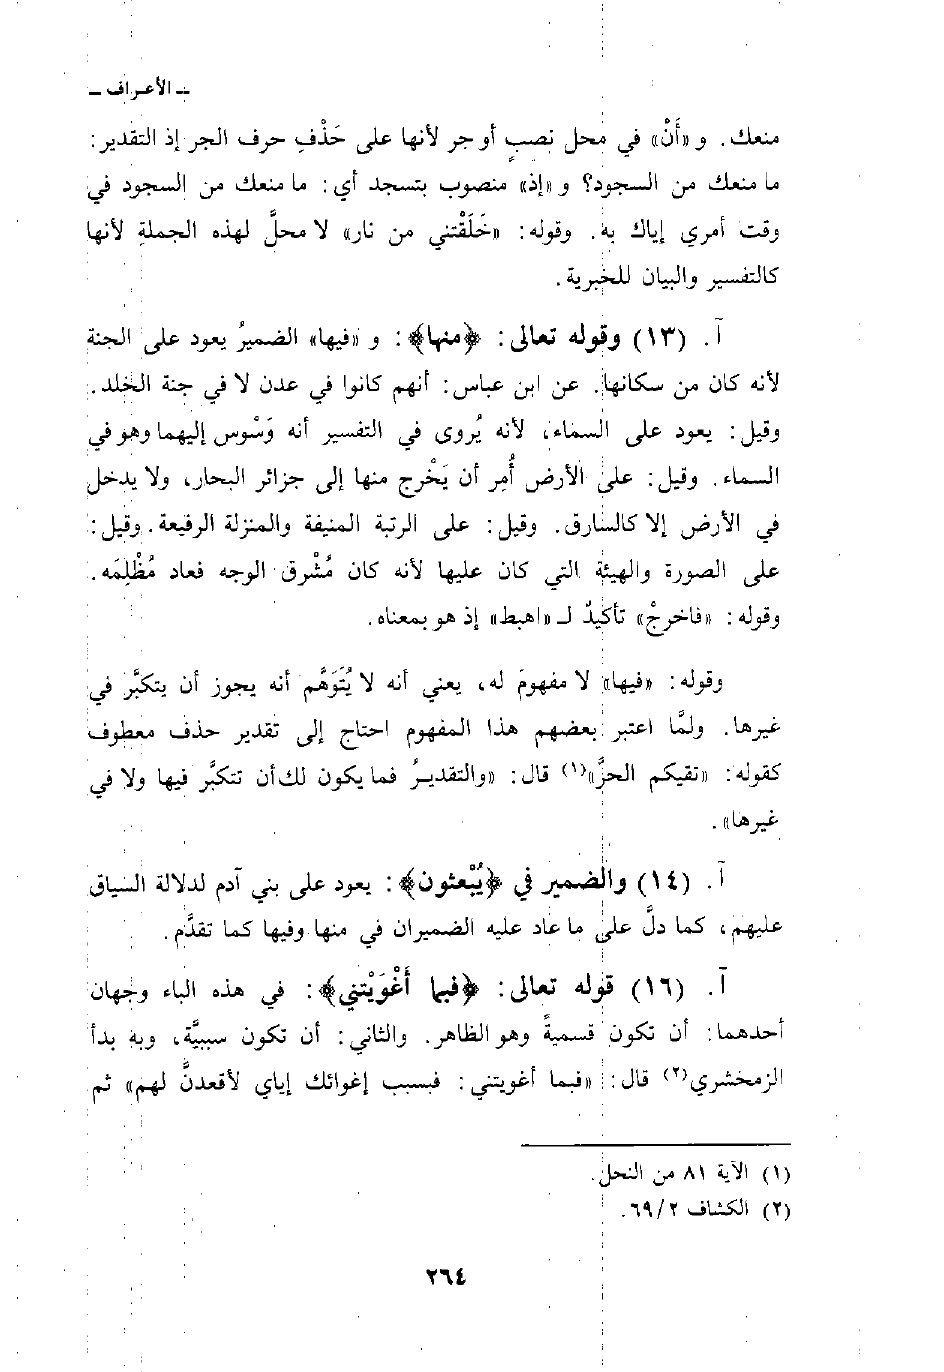 ـ الأعراف ـ
منعك. و «أَنْ» في محل نصبٍ أو جر لأنها على حَذْفِ حرف الجر إذ التقدير:
ما منعك من السجود؟ و «إذ» منصوب بتسجد أي: ما منعك من السجود في
وقت أمري إياك به. وقوله: «خَلَقْتني من نار» لا محلَّ لهذه الجملةِ لأنها
كالتفسير والبيان للخبرية.
آ. (١٣) وقوله تعالى: ﴿منها﴾: و «فيها» الضميرُ يعود على الجنة
لأنه كان من سكانها. عن ابن عباس: أنهم كانوا في عدن لا في جنة الخلد.
وقيل: يعود على السماء، لأنه يُروى في التفسير أنه وَسْوس إليهما وهو في
السماء. وقيل: على الأرض أُمِر أن يَخْرج منها إلى جزائر البحار، ولا يدخل
في الأرض إلا كالسارق. وقيل: على الرتبة المنيفة والمنزلة الرفيعة. وقيل:
على الصورة والهيئة التي كان عليها لأنه كان مُشْرق الوجه فعاد مُظْلِمَه.
وقوله: «فاخرجْ» تأكيدٌ لـ «اهبط» إذ هو بمعناه.
وقوله: «فيها» لا مفهومَ له، يعني أنه لا يُتَوَهَّم أنه يجوز أن يتكبَّر في
غيرها. ولمَّا اعتبر بعضهم هذا المفهوم احتاج إلى تقدير حذف معطوف
كقوله: «تقيكم الحرَّ»(١) قال: «والتقديرُ فما يكون لك أن تتكبَّر فيها ولا في
غيرها».
آ. (١٤) والضمير في ﴿يُبْعثون﴾: يعود على بني آدم لدلالة السياق
عليهم، كما دلَّ على ما عاد عليه الضميران في منها وفيها كما تقدَّم.
آ. (١٦) قوله تعالى: ﴿فبما أَغْوَيْتني﴾: في هذه الباء وجهان
أحدهما: أن تكون قسميةً وهو الظاهر. والثاني: أن تكون سببيَّة، وبه بدأ
الزمخشري(٢) قال: «فبما أغويتني: فبسبب إغوائك إياي لأقعدنَّ لهم» ثم
(١) الآية ٨١ من النحل.
(٢) الكشاف ٦٩/٢.
٢٦٤